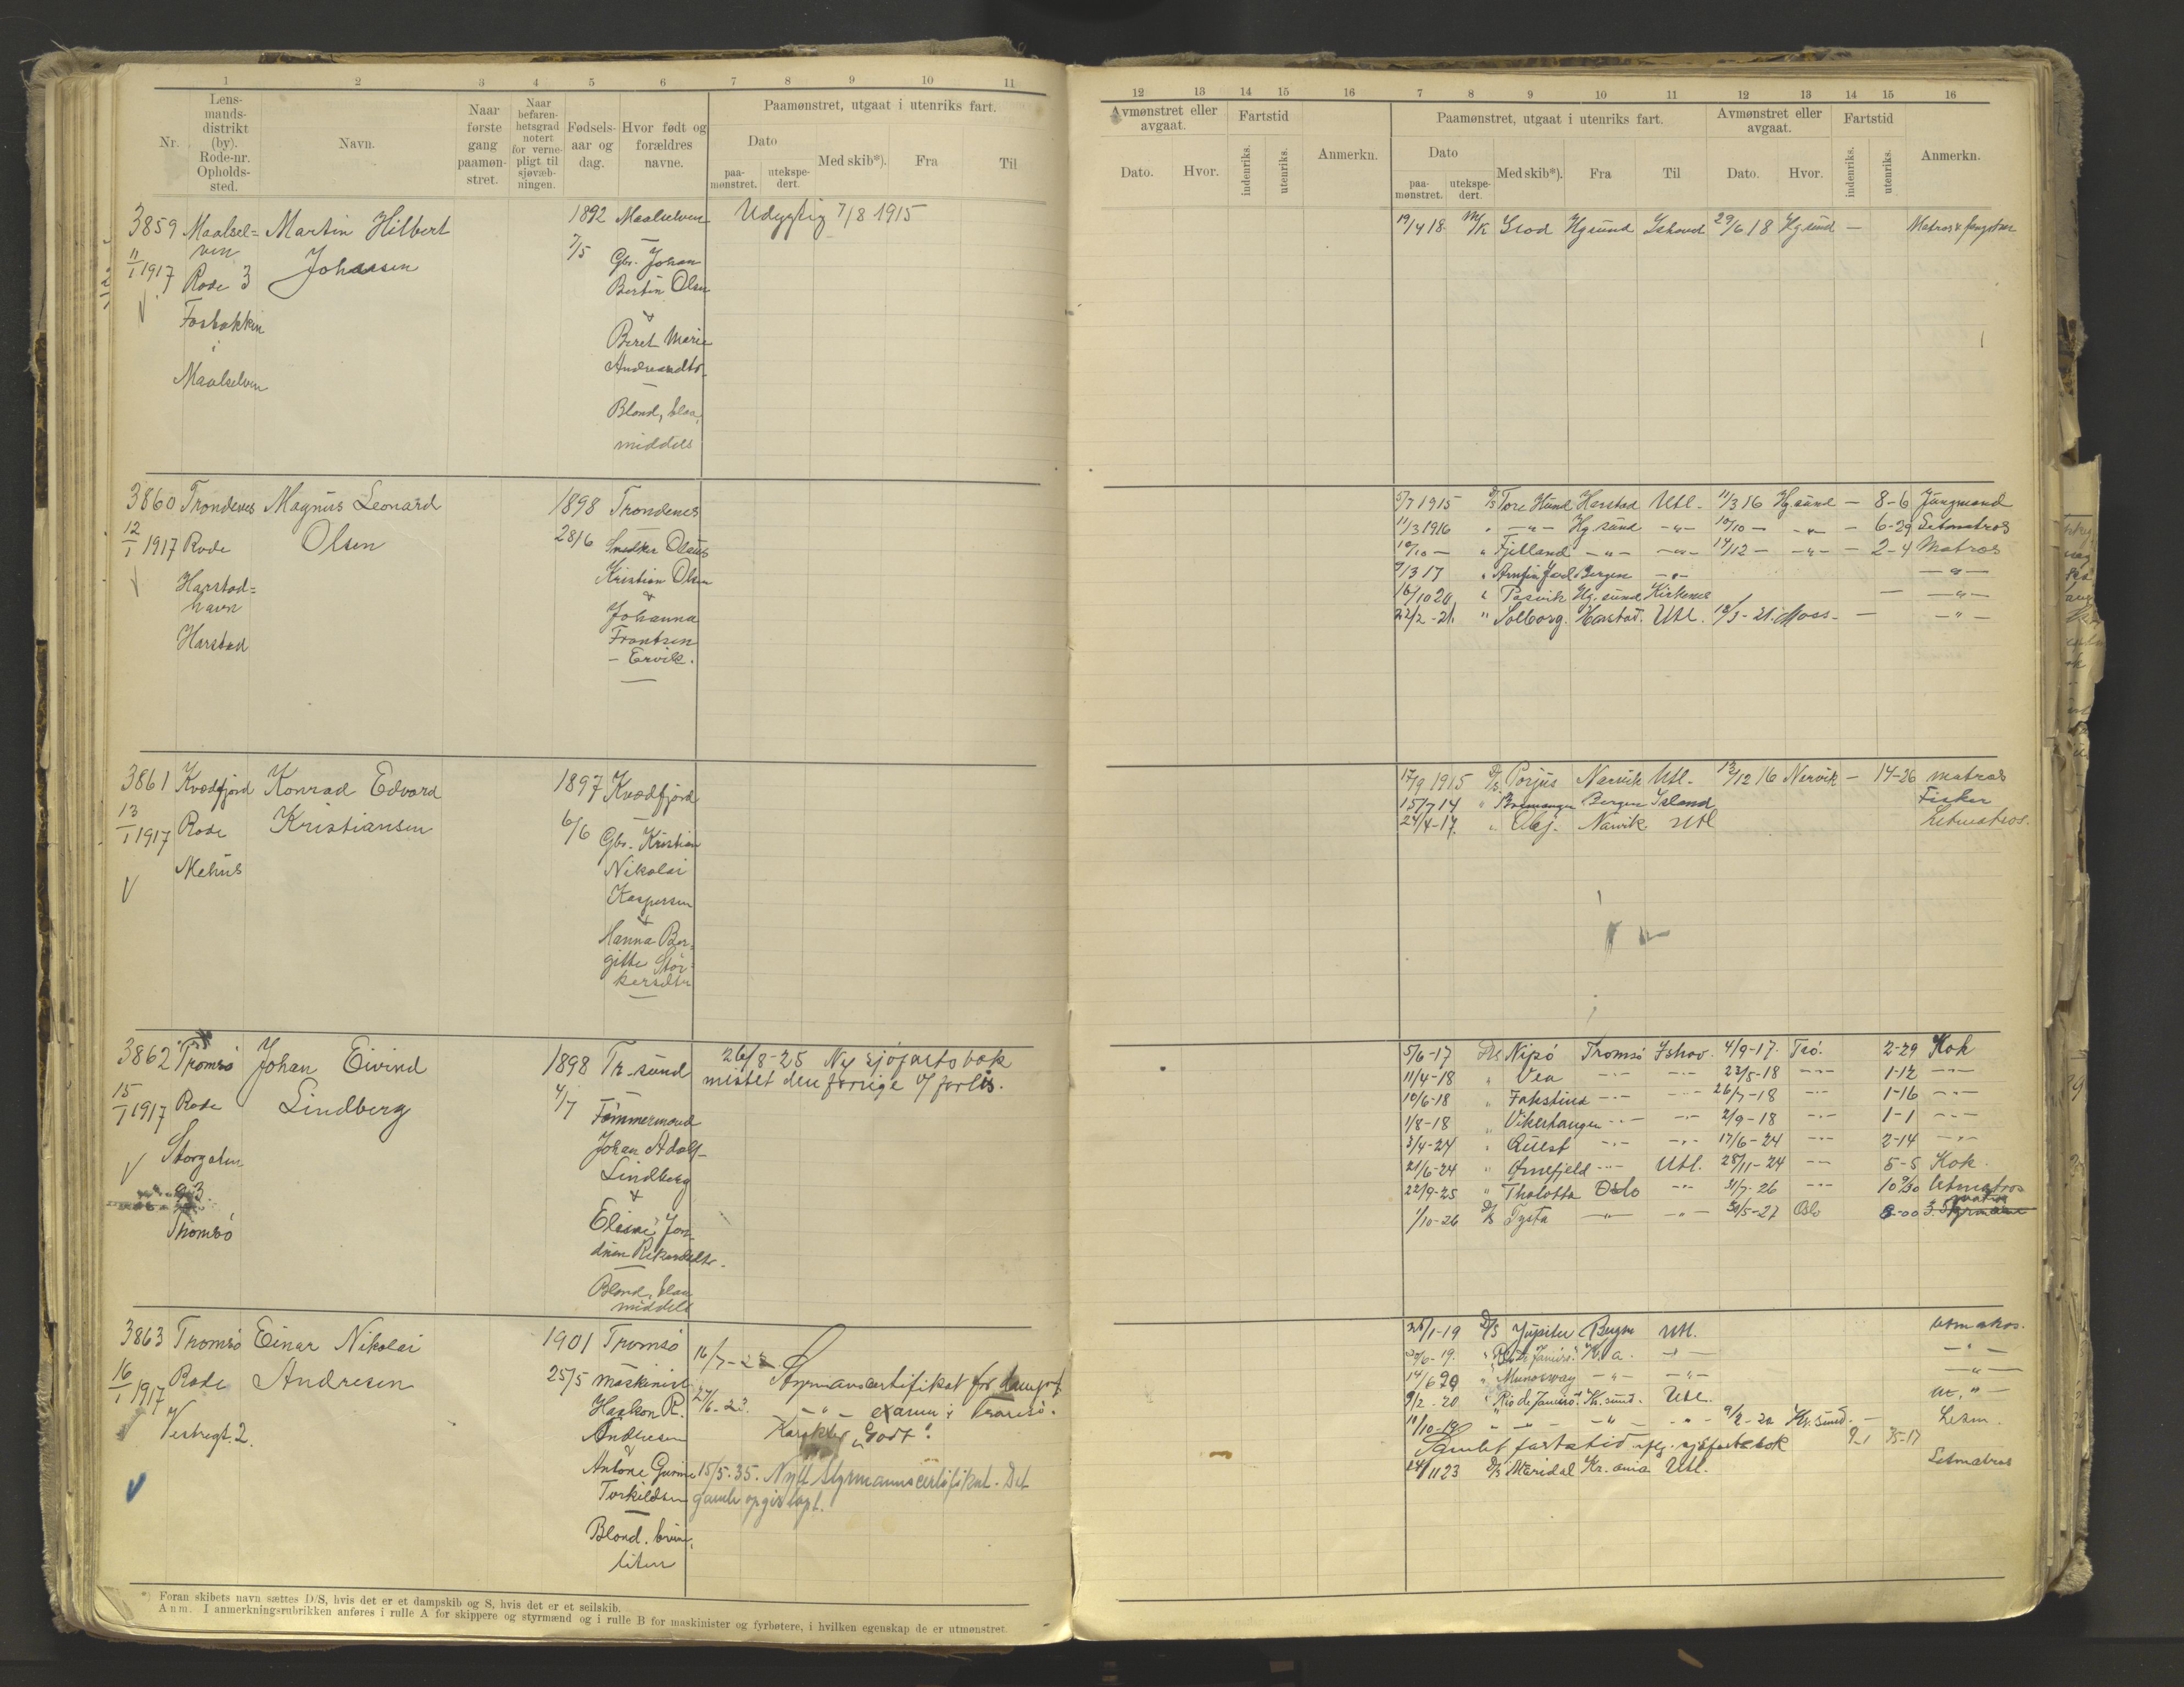 1 2 3 4 5 6 7 8 9 10 11
Nr.
Lens-
mands-
distrikt
(by).
Rode-nr.
Opholds-
sted.
Navn.
Naar
første
gang
paamøn-
stret.
Naar
befaren-
hetsgrad
notert
for verne-
pligt til
sjøvæb-
ningen.
Fødsels-
aar og
dag.
Hvor født og
forældres
navne.
Paamønstret, utgaat i utenriks fart.
Dato
paa-
mønstret.
utekspe-
dert.
Med skib*).
Fra
Til
3859 Maalsel= Martin Hilbert 1892 Maalselven Udygtig 7/8 1915
ven Johansen 7/5 Gbr. Johan
11/1 1917 Rode 3 Bertin Olsen
Fosbakken &
i Beret Marie
Maalselven
Blond, blaa,
middels
3860 Trondenes Magnus Leonard 1898 Trondenes
12/1 1917 Rode Olsen 28/6 Snedker Olaus
Harstad= Kristian Olsen
havn &
Harstad Johanna
Frantsen
- Ervik.
3861 Kvædfjord Konrad Edvard 1897 Kvædfjord
13/1 1917 Rode Kristiansen 6/6 Gbr. Kristian
Mehus Nikolai
Kaspersen
&
Hanna Ber=
gitte Stor=
kersdtr
3862 Tromsö Johan Eivind 1898 Tr.sund 26/8-25 Ny sjøfartsbok
15/1 1917 Rode Lindberg 4/7 mistet den forrige v/ forlis.
Storgaten Tømmermand
93. Johan Adolf
Tromsö Lindberg
&
Blond, blaa
middels
3863 Tromsö Einar Nikolai 1901 Tromsö
16/1 1917 Rode Andresen 25/5 Maskinist 16/7-22 Styrmanscertifikat for dampsk.
Vestregt. 2. Haakon R. 27/6-23. - " - examen i Tromsö.
Andresen Karakter „Godt".
&
Antone Gurine 15/5.35. Nytt Styrmannscertifikat. Det
Torkildsen gamle opgis tapt.
Blond, brun,
liten
*) Foran skibets navn sættes D/S, hvis det er et dampskib og S, hvis det er et seilskib.
Anm. I anmerkningsrubrikken anføres i rulle A for skippere og styrmænd og i rulle B for maskinister og fyrbøtere, i hvilken egenskap de er utmønstret.
12 13 14 15 16 7 8 9 10 11 12 13 14 15 16
Avmønstret eller
avgaat.
Dato.
Hvor.
Fartstid
indenriks.
utenriks.
Anmerkn.
Paamønstret, utgaat i utenriks fart.
Dato
paa-
mønstret.
utekspe-
dert.
Med skib*).
Fra
Til
Avmønstret eller
avgaat.
Dato.
Hvor.
Fartstid
indenriks.
utenriks.
Anmerkn.
19/4 18. M/K Hgsund Ishavet 29/6 18 Hgsund - Matros & fangstm
5/7 1915 D/S Tore Hund Harstad Utl. 11/3 16 Hg.sund - 8-6 Jungmand
11/3 1916 " -"- Hg sund -"- 10/10 - -"- - 6-29 Letmatros
10/10 - " Fjelland -"- -"- 14/12 - -"- - 2-4 Matros
9/3 17 " Arnfin Jarl Bergen -"- -"-
16/10 20 " Pasvik Hg.sund Kirkenes - -"-
22/2-21. " Solborg. Harstad. Utl. 18/3-21. Moss. - -"-
17/9 1915 D/S Porjus Narvik Utl. 13/12 16 Narvik - 14-26 matros
15/7 14 " Bremanger Bergen Island Fisker
24/4-17. " Narvik Utl Letmatros.
5/6-17 Nisö Tromsö Ishav. 4/9-17. Tsö. 2-29 Kok
11/4-18 " Vea -"- -"- 23/5-18 -"- 1-12 -"-
10/6-18 " -"- -"- 26/7-18 -"- 1-16 -"-
1/8-18 " Vikertangen -"- -"- 2/9-18 -"- 1-1 -"-
3/4-24 " Quest -"- -"- 17/6-24 -"- 2-14 -"-
21/6-24 " Ørnefjeld -"- Utl. 25/11-24 -"- 5-5 Kok.
22/9-25 " Thalatta Oslo -"- 31/7-26 -"- 10 Letmatros
1/10-26 D/S Tysla -"- -"- 30/5-27 Oslo 8-00 matros 3. Styrmann
25/1-19 D/S Jupiter Bergen Utl. Letmatros.
20/6-19. " Rio d. Janeiro. Kr.a. -"- -"-
14/6 20 " Munorway -"- -"- -"-
9/2-20 " Rio de Janeiro. Kr.sund. Utl.
11/10-19 -"- -"- -"- 9/2-20 Kr.sund. - Letm.
Samlet fartstid iflg. sjøfartsbok
24/11 23 D/S Maridal Kr.ania Utl. Letmatros